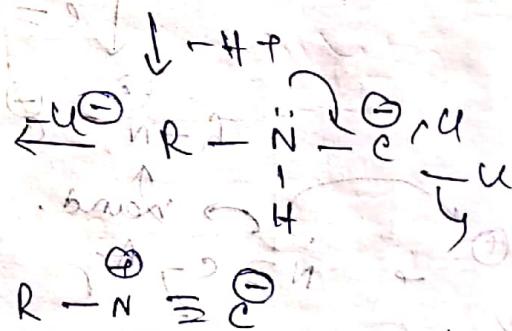 ↓ -H+
-Cl⊖ ← R - N̈ - C⊖ Cl
- Cl
H
R - N⊕ ≡ C⊖